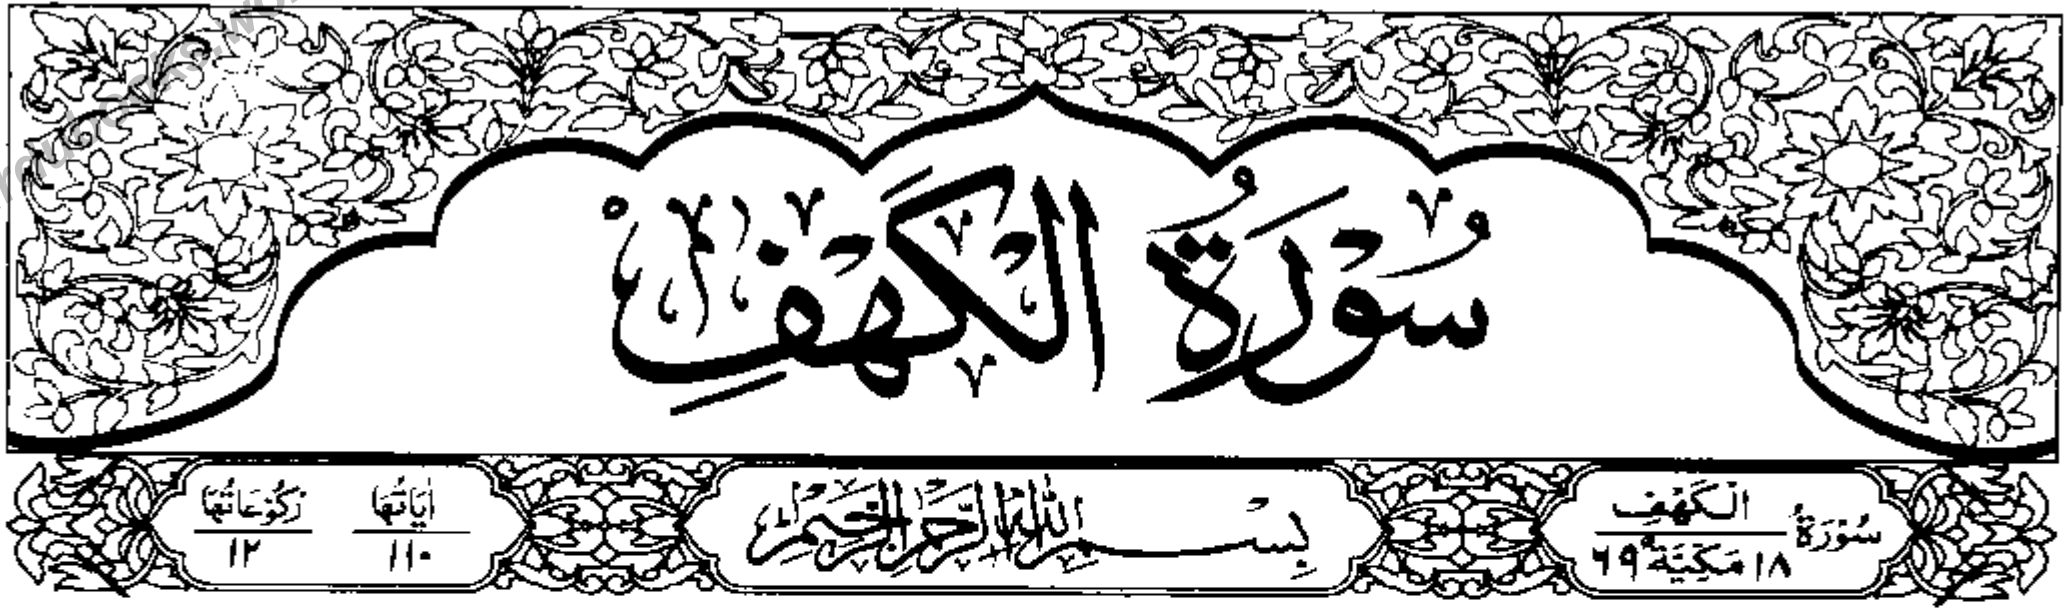 سُوْرَةُ الْكَهْفِ
سُوْرَةُ الْكَهْفِ ١٨ مَكِّيَّةٌ ٦٩
بِسْمِ اللهِ الرَّحْمٰنِ الرَّحِيْمِ
اٰيَاتُهَا ١١٠
رُكُوْعَاتُهَا ١٢